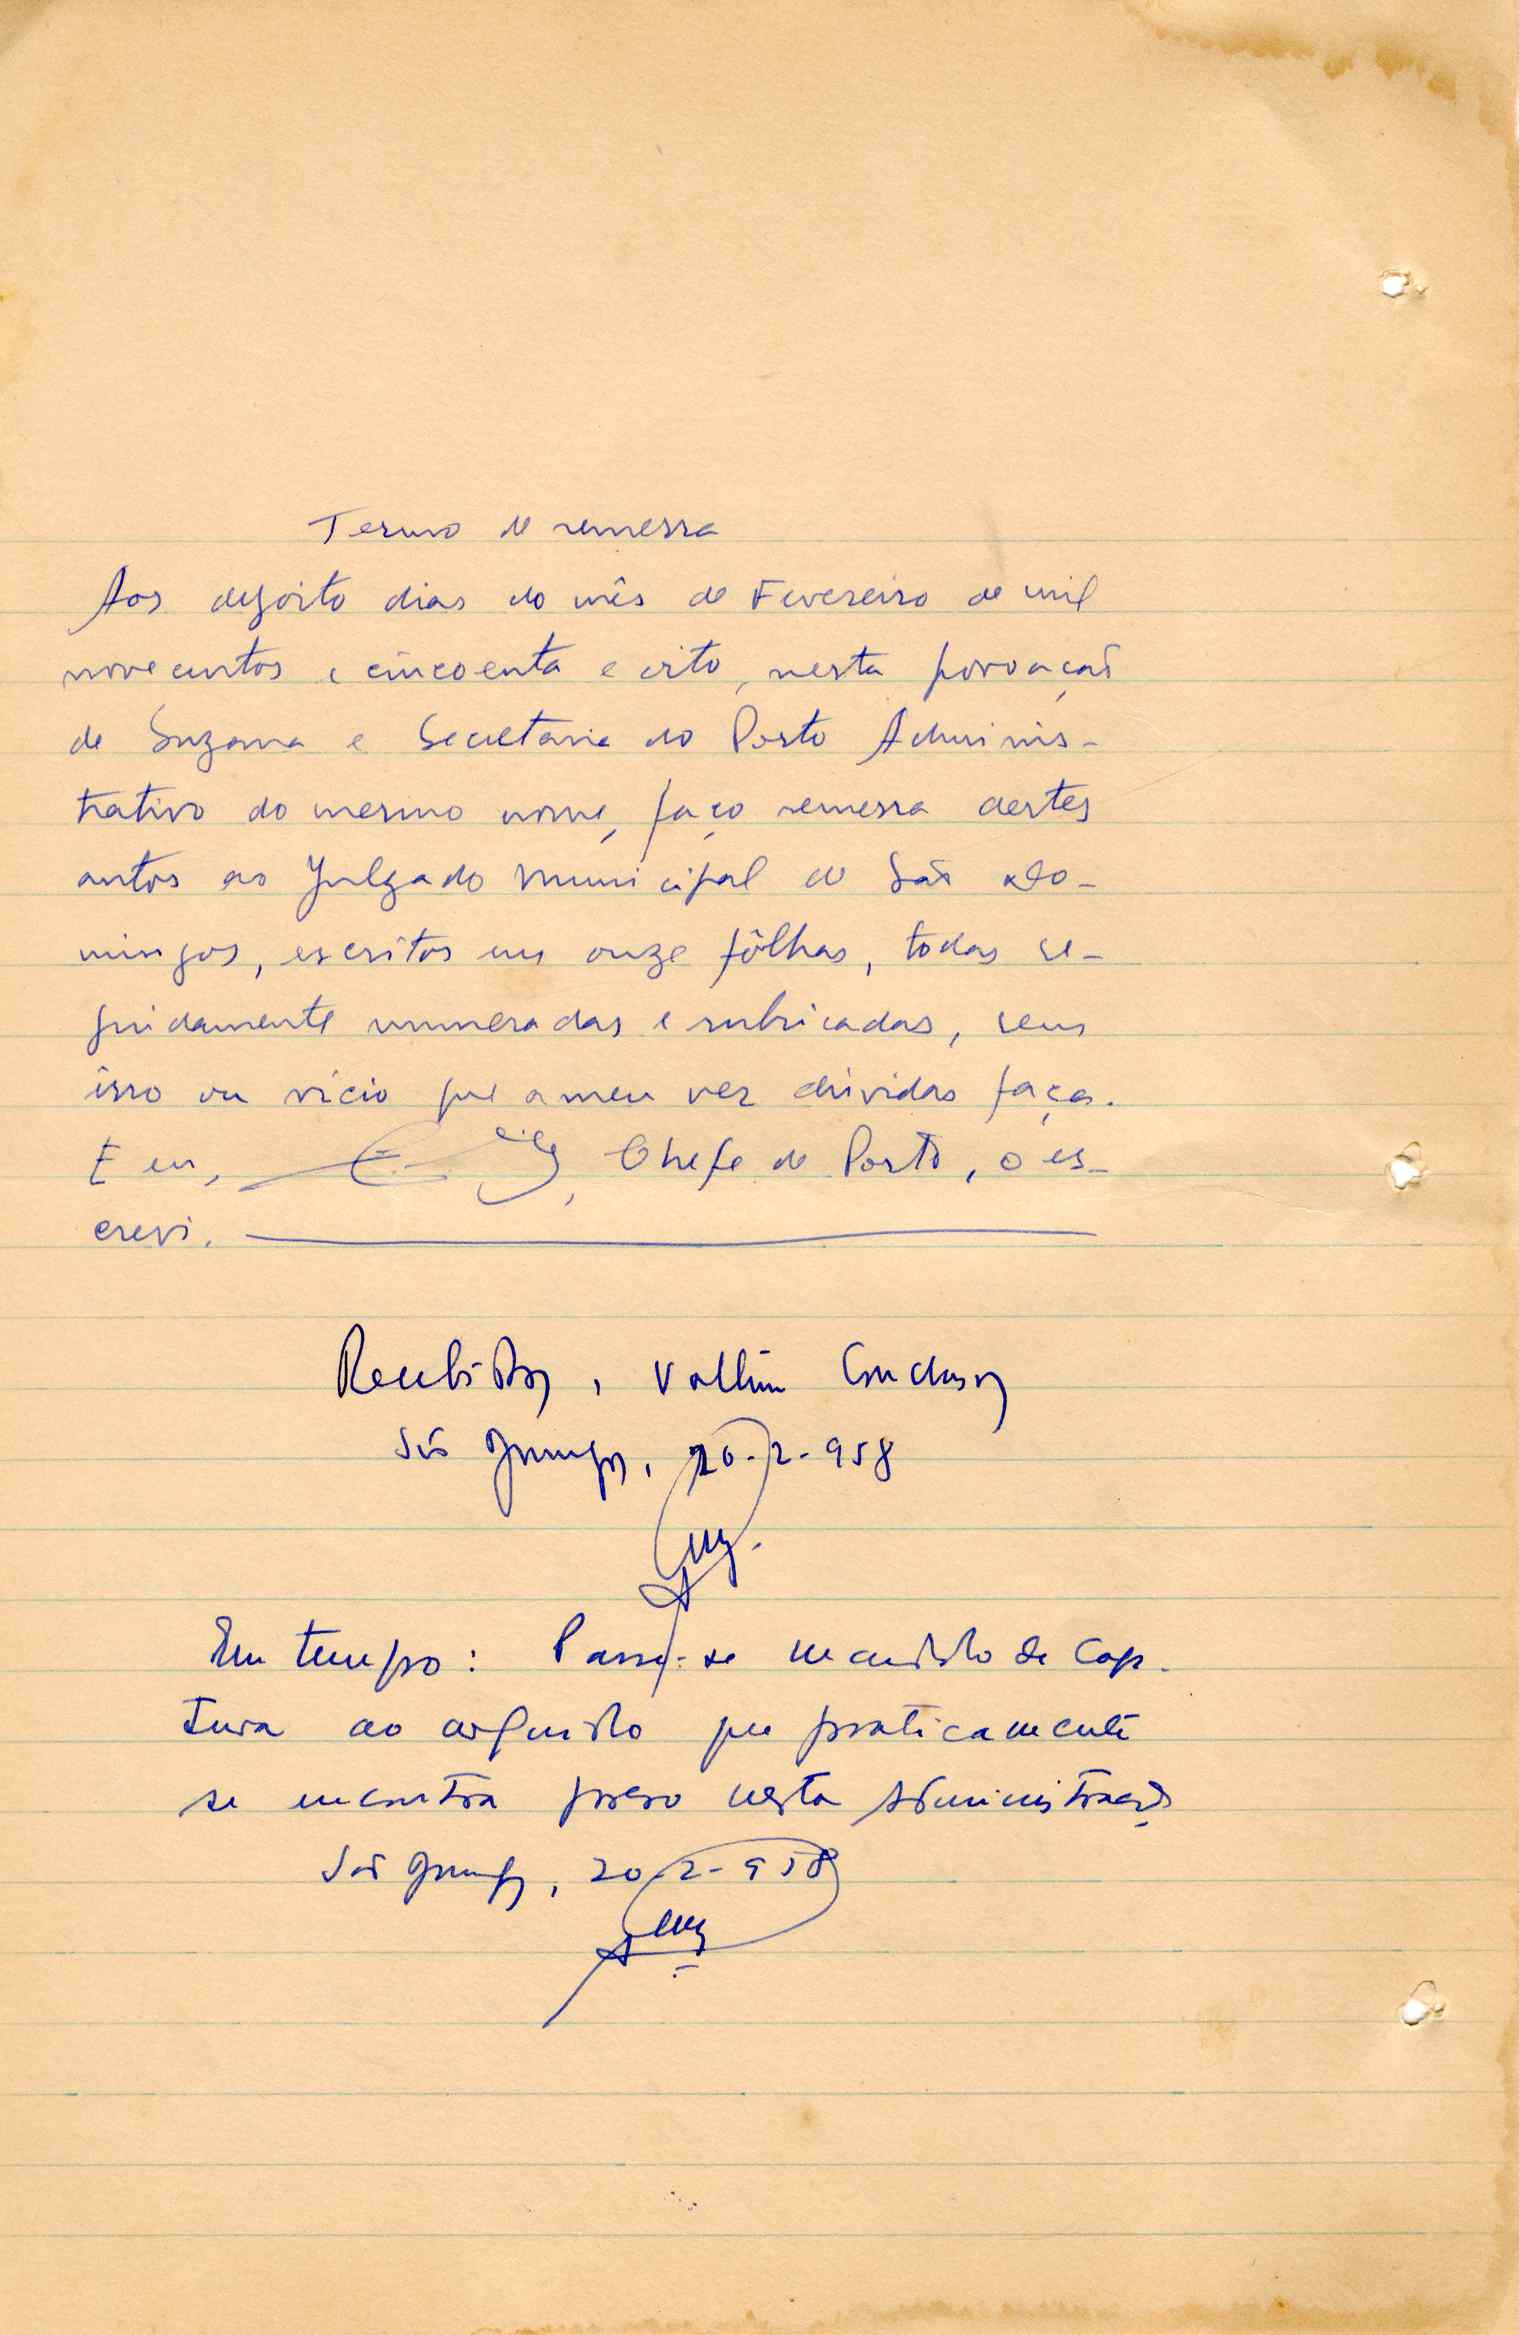 Termo de remessa
Aos dezoito dias do mês de Fevereiro de mil
novecentos e cincoenta e oito, nesta povoação
de Suzana e Secretaria do Posto Adminis-
trativo do mesmo nome, faço remessa destes
autos ao Julgado Municipal de São Do-
mingos, escritos em onze fôlhas, todas se-
guidamente numeradas e rubricadas, sem
isso ou vício que a meu ver dúvidas faça.
E eu, Chefe de Posto, o es-
crevi.
Registados, voltem conclusos
São Domingos, 20-2-958
Em tempo: Passe-se mandado de cap-
tura ao arguido que praticamente
se encontra preso nesta Administração
São Domingos, 20-2-958